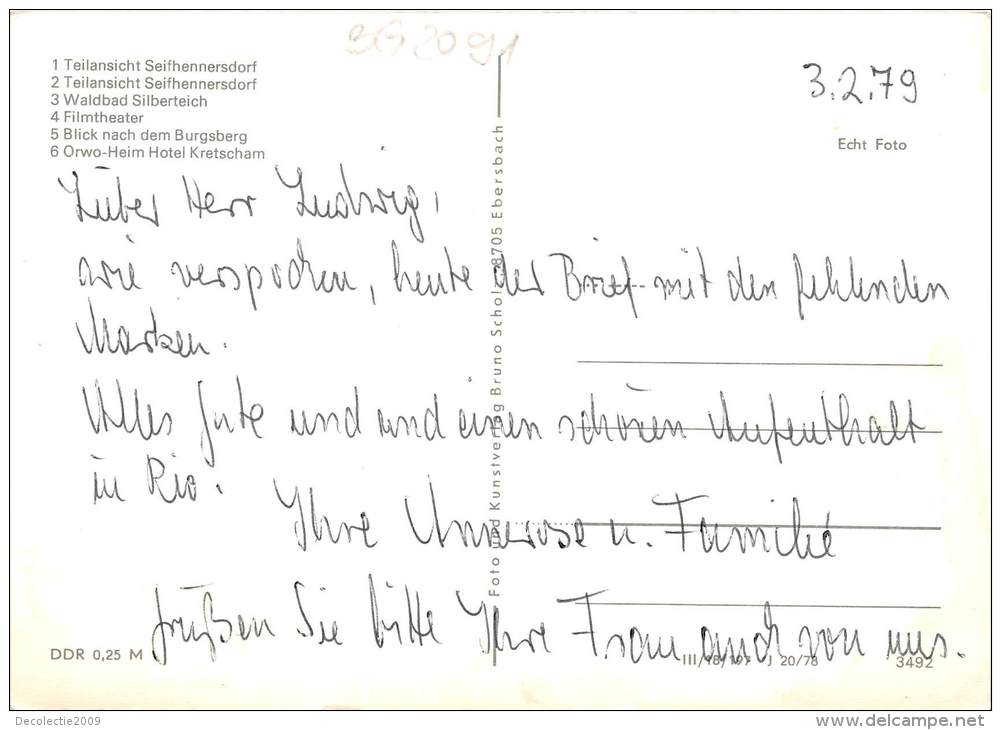 SG2091
1 Teilansicht Seifhennersdorf
2 Teilansicht Seifhennersdorf
3 Waldbad Silberteich
4 Filmtheater
5 Blick nach dem Burgsberg
6 Orwo-Heim Hotel Kretscham
3.2.79
Echt Foto
Lieber Herr Ludwig,
wie versprochen, heute der Brief mit den fehlenden
Marken.
Alles Gute und und einen schönen Aufenthalt
in Rio.
Ihre Annerose u. Familie
Grüßen Sie bitte Ihre Frau auch von uns.
Foto und Kunstverlag Bruno Scholz 8705 Ebersbach
DDR 0,25 M
III/18/197 J 20/78
3492
Decolectie2009
delcampe.net